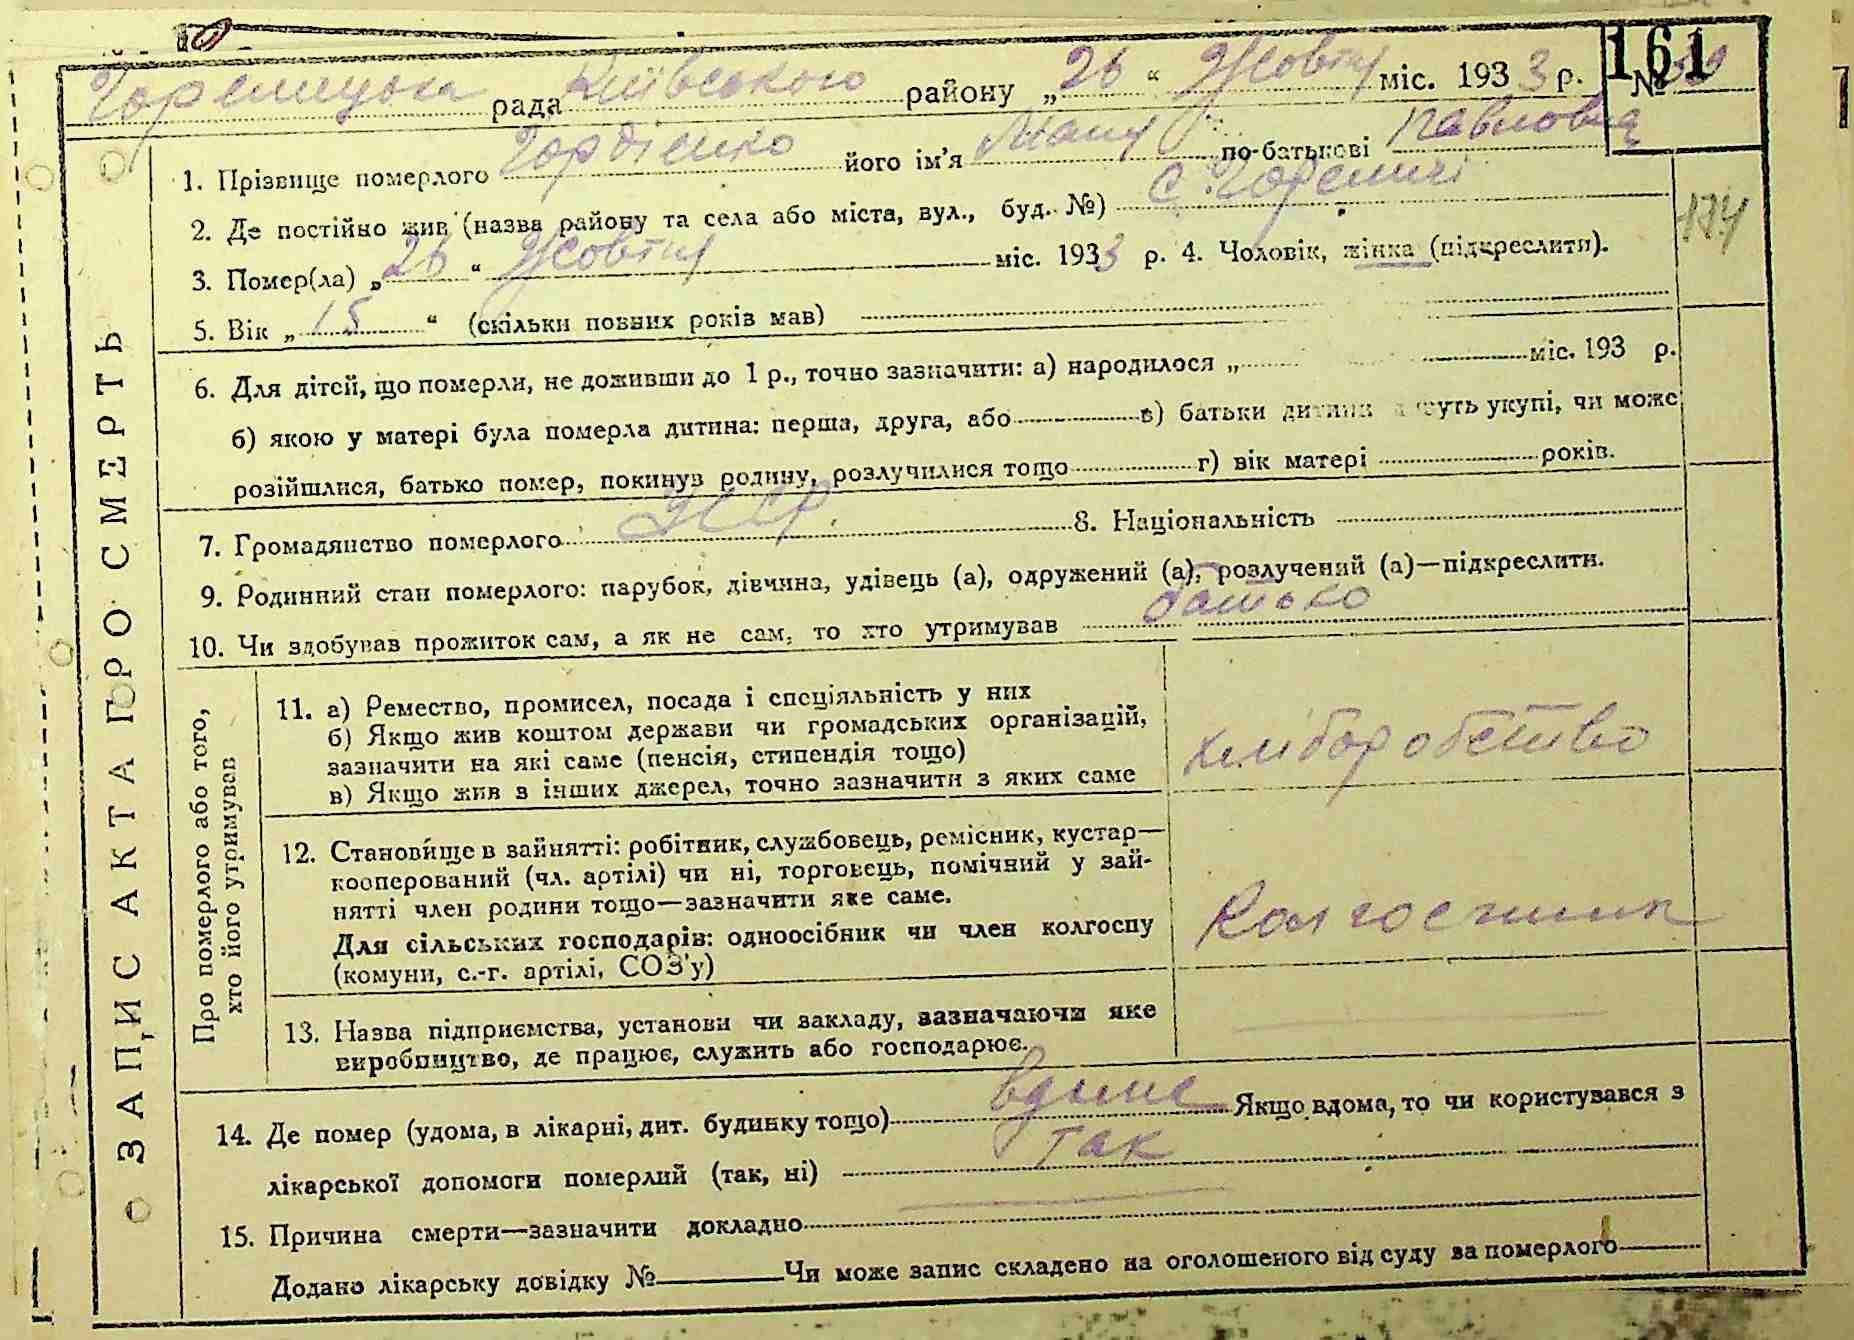 161
Горелицька рада Київського району „26“ Жовтня міс. 1933 р. №
1. Прізвище померлого Гордієнко його ім'я по-батькові Павловна
2. Де постійно жив (назва району та села або міста, вул., буд. №) с. Гореничі
174
3. Помер(ла) „26“ Жовтня міс. 1933 р. 4. Чоловік, жінка (підкреслити).
5. Вік „15“ (скільки повних років мав)
6. Для дітей, що померли, не доживши до 1 р., точно зазначити: а) народилося „ міс. 193 р.
б) якою у матері була померла дитина: перша, друга, або в) батьки дитини живуть укупі, чи може
розійшлися, батько помер, покинув родину, розлучилися тощо г) вік матері років.
7. Громадянство померлого УСРР 8. Національність
9. Родинний стан померлого: парубок, дівчина, удівець (а), одружений (а), розлучений (а)—підкреслити.
10. Чи здобував прожиток сам, а як не сам, то хто утримував батько
ЗАПИС АКТА ПРО СМЕРТЬ
Про померлого або того,
хто його утримував
11. а) Ремество, промисел, посада і спеціяльність у них
б) Якщо жив коштом держави чи громадських організацій,
зазначити на які саме (пенсія, стипендія тощо)
в) Якщо жив з інших джерел, точно зазначити з яких саме
хліборобство
12. Становище в зайнятті: робітник, службовець, ремісник, кустар—
кооперований (чл. артілі) чи ні, торговець, помічний у зай-
нятті член родини тощо—зазначити яке саме.
Для сільських господарів: одноосібник чи член колгоспу
(комуни, с.-г. артілі, СОЗ'у)
Колгоспник
13. Назва підприємства, установи чи закладу, зазначаючи яке
виробництво, де працює, служить або господарює.
14. Де помер (удома, в лікарні, дит. будинку тощо) вдома Якщо вдома, то чи користувався з
лікарської допомоги померлий (так, ні) так
15. Причина смерти—зазначити докладно
Додано лікарську довідку № Чи може запис складено на оголошеного від суду за померлого